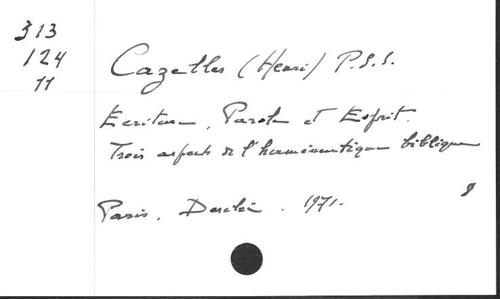 313
124
11
Cazelles (Henri) P.S.S.
Ecriture, Parole et Esprit.
Trois aspects de l'herméneutique biblique
Paris, Desclée. 1971.
8